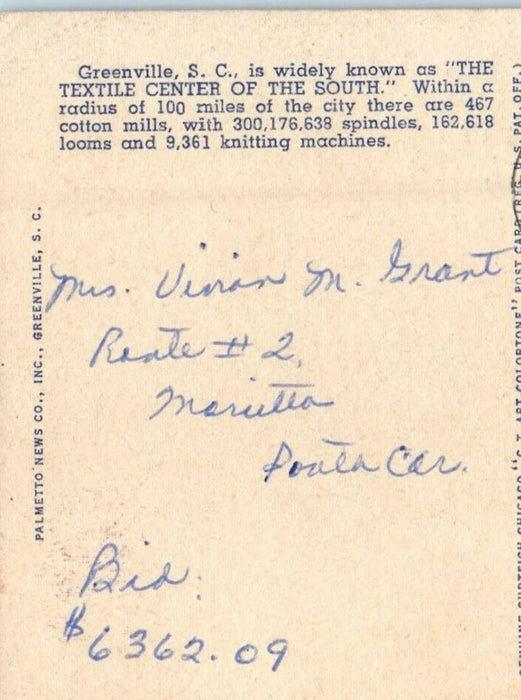 Greenville, S. C., is widely known as "THE
TEXTILE CENTER OF THE SOUTH." Within a
radius of 100 miles of the city there are 467
cotton mills, with 300,176,638 spindles, 162,618
looms and 9,361 knitting machines.
PALMETTO NEWS CO., INC., GREENVILLE, S. C.
Mrs. Vivian M. Grant
Route # 2,
Marietta
South Car.
Bid:
$6362.09
"C. T. ART-COLORTONE" POST CARD REG. U. S. PAT. OFF.)